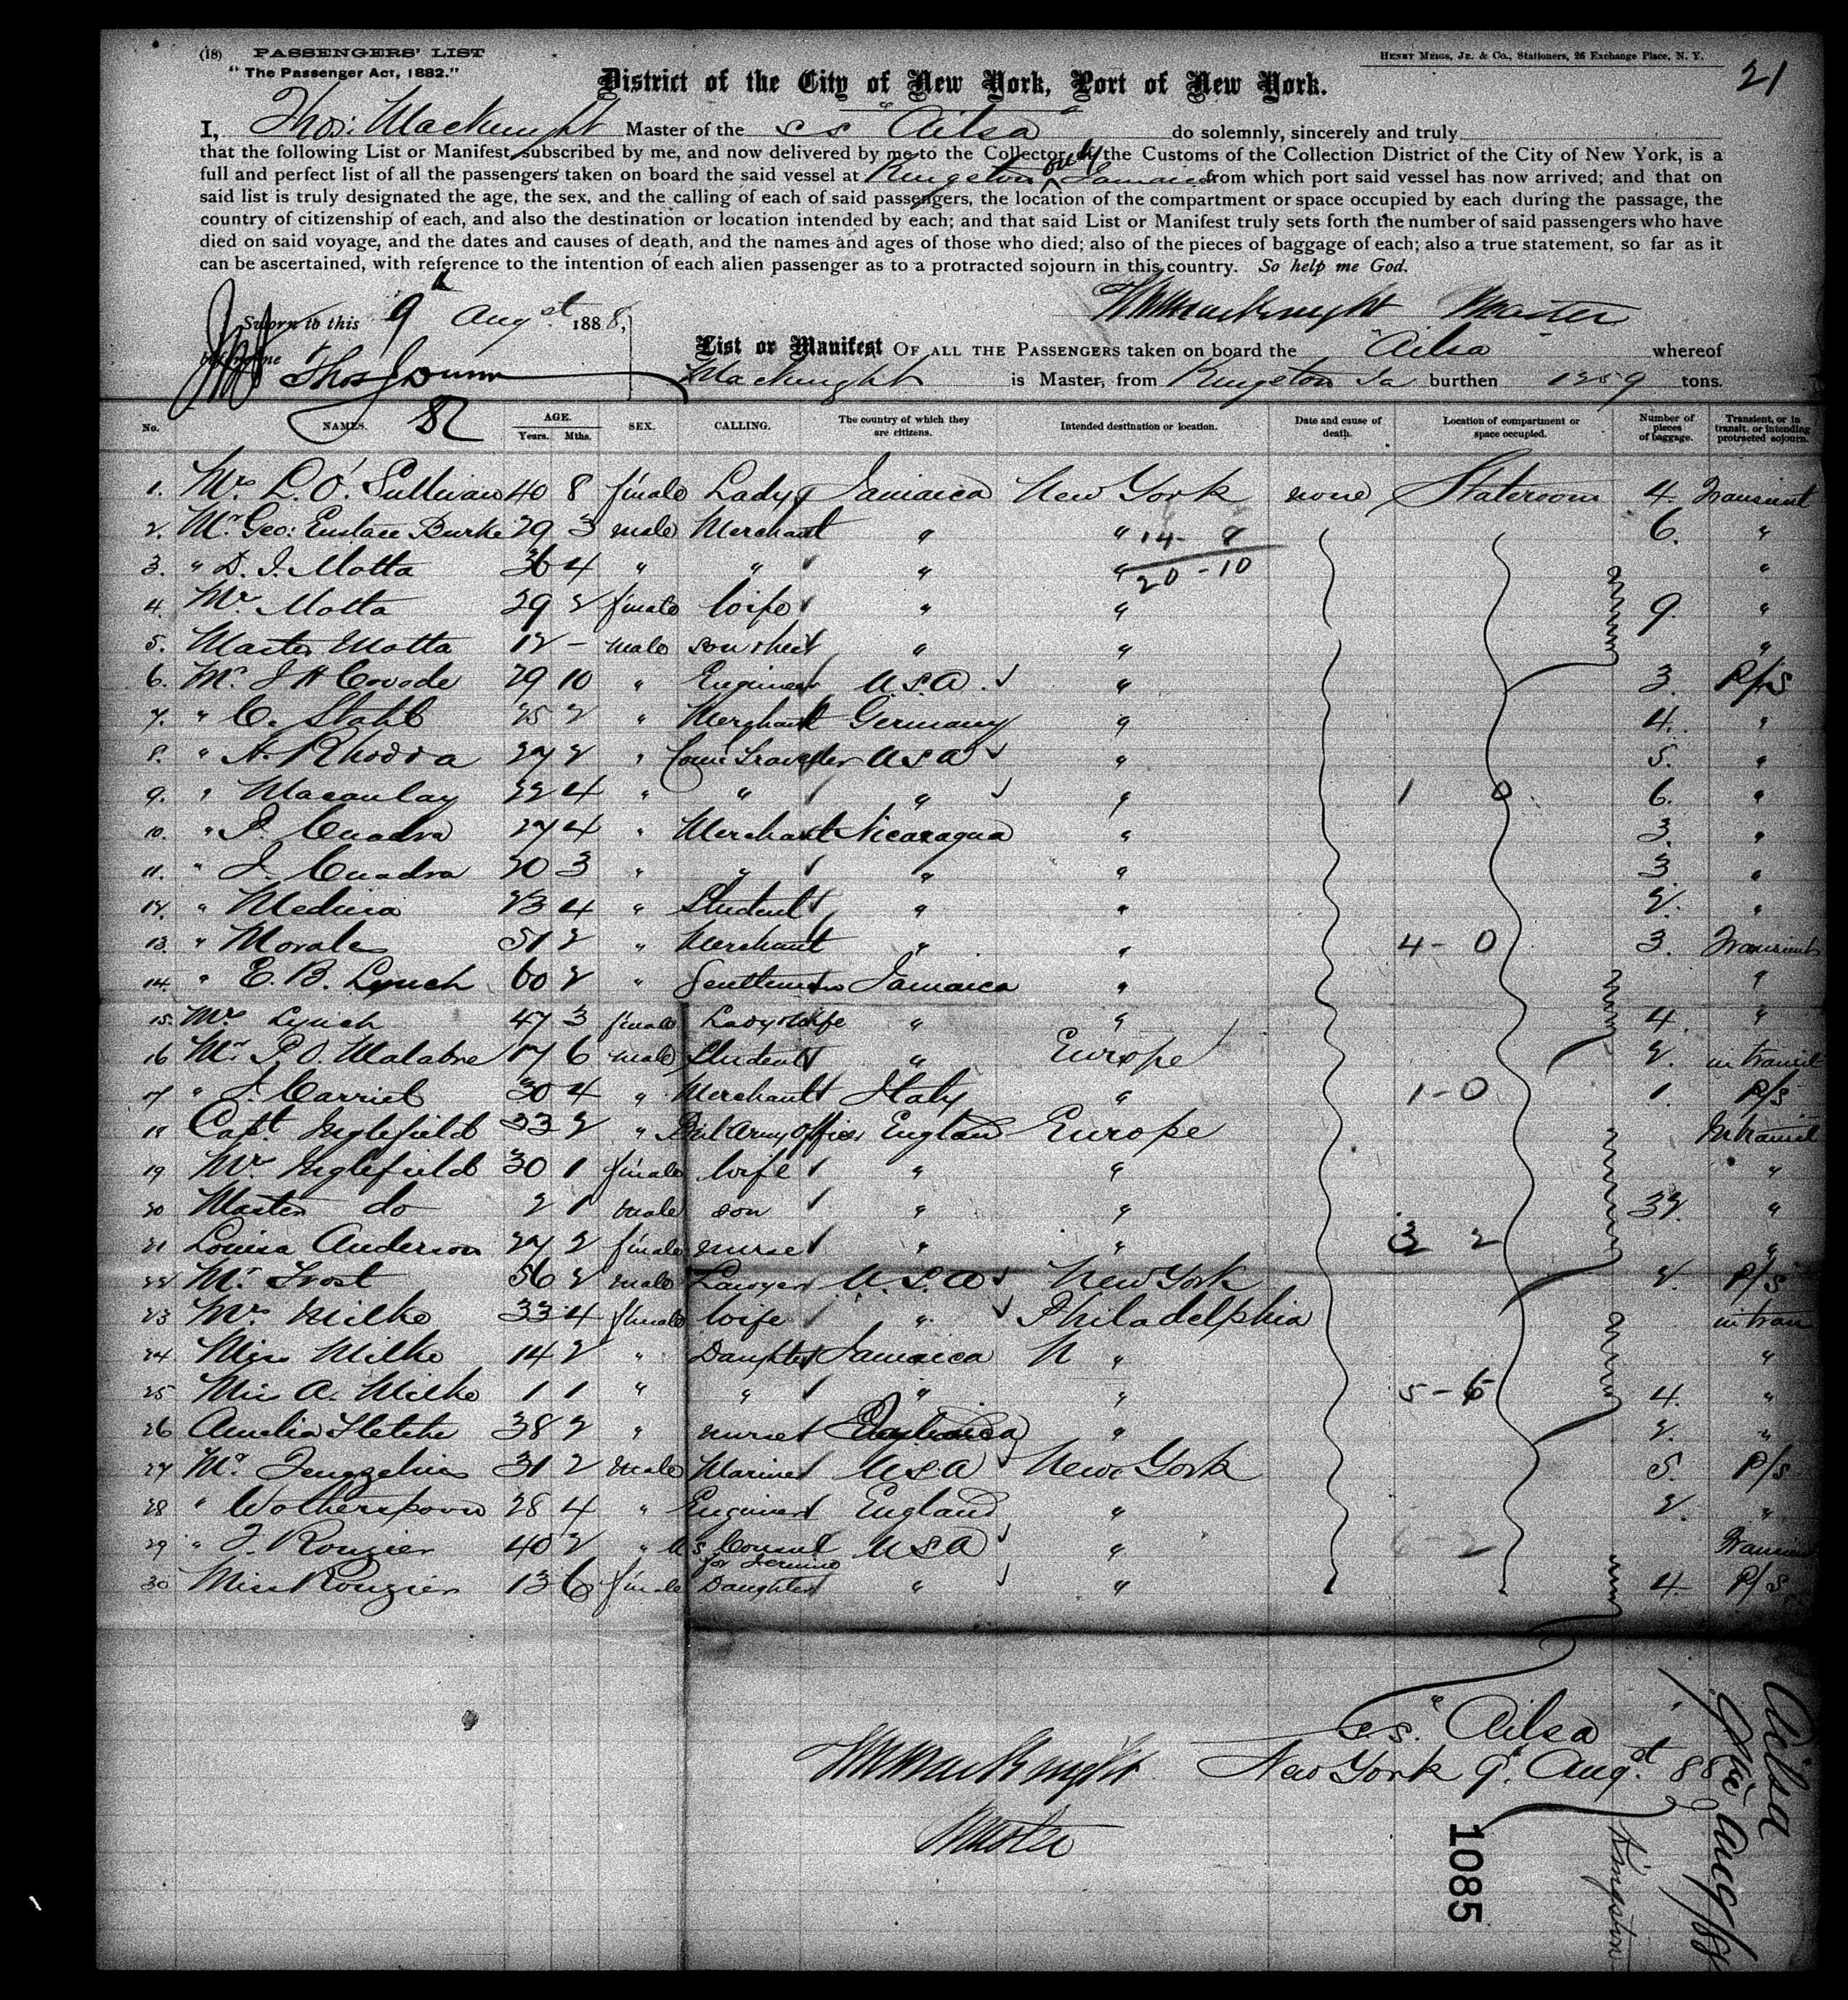 (18) PASSENGERS' LIST
"The Passenger Act, 1882."
HENRY MEIGS, JR. & CO., Stationers, 26 Exchange Place, N. Y.
21
District of the City of New York, Port of New York.
I, Thos: Macknight Master of the S S "Ailsa" do solemnly, sincerely and truly
that the following List or Manifest, subscribed by me, and now delivered by me to the Collector of the Customs of the Collection District of the City of New York, is a
full and perfect list of all the passengers taken on board the said vessel at Kingston Jamaica from which port said vessel has now arrived; and that on
said list is truly designated the age, the sex, and the calling of each of said passengers, the location of the compartment or space occupied by each during the passage, the
country of citizenship of each, and also the destination or location intended by each; and that said List or Manifest truly sets forth the number of said passengers who have
died on said voyage, and the dates and causes of death, and the names and ages of those who died; also of the pieces of baggage of each; also a true statement, so far as it
can be ascertained, with reference to the intention of each alien passenger as to a protracted sojourn in this country. So help me God.
Macknight Master
Sworn to this 9th Augst 1888,
before me Thos J Dunn
List or Manifest OF ALL THE PASSENGERS taken on board the "Ailsa whereof
Macknight is Master, from Kingston Ja burthen 1259 tons.
82
No. NAMES. AGE. Years. Mths. SEX. CALLING. The country of which they are citizens. Intended destination or location. Date and cause of death. Location of compartment or space occupied. Number of pieces of baggage. Transient, or in transit, or intending protracted sojourn.
1. Mrs L. O'. Sullivan 40 8 female Lady Jamaica New York none Stateroom 4. Transient
2. Mr Geo: Eustace Burke 29 3 male Merchant " " 14- 8 6. "
3. " D. I. Motta 36 4 " " " " 20-10 "
4. Mrs Motta 29 2 female Wife " " 9. "
5. Master Motta 12 - male son " " "
6. Mr. J H Covode 29 10 " Engineer U.S.A. " 3. P/S
7. " C. Stahl 25 2 " Merchant Germany " 4. "
8. " A. Rhodda 27 2 " Com Traveller U S A " 5. "
9. " Macaulay 22 4 " " " " 1 0 6. "
10. " P. Cuadra 27 4 " Merchant Nicaragua " 3. "
11. " J. Cuadra 20 3 " " " " 3 "
12. " Medina 23 4 " Student " " 2. "
13. " Morales 51 2 " Merchant " " 4-0 3. Transient
14. " E. B. Lynch 60 2 " Gentleman Jamaica " "
15. Mrs Lynch 47 3 female Lady & Wife " " 4. "
16 Mr. P. O. Malabre 17 6 male Student " Europe 2. in transit
17 " J. Carriet 30 4 " Merchant Italy " 1-0 1. P/S
18 Capt. Inglefield 33 2 " Brit Army Officer England Europe In transit
19 Mrs Inglefield 30 1 female Wife " " "
20 Master do 2 1 male son " " 32. "
21 Louisa Anderson 27 2 female nurse " " 3 2 "
22 Mr. Frost 56 2 male Lawyer U.S.A New York 2. P/S
23 Mrs. Milke 33 4 female Wife " Philadelphia in tran
24 Miss Milke 14 2 " Daughter Jamaica N " "
25 Miss A. Milke 1 1 " " " " 5-6 4. "
26 Amelia 38 2 " nurse " 2. "
27 Mr. 31 2 male Mariner U S A New York 5. P/S
28 " Wotherspoon 28 4 " Engineer England " 2. "
29 " J. Rouzier 40 2 " U S Consul U S A " 6-2 Transient
for Jeremie
30 Miss Rouzier 13 6 female Daughter " " 4. P/S
S.S. "Ailsa"
New York 9th. Augst. 88
Macknight
Master
1085
Kingston
Ailsa
9th Aug/88